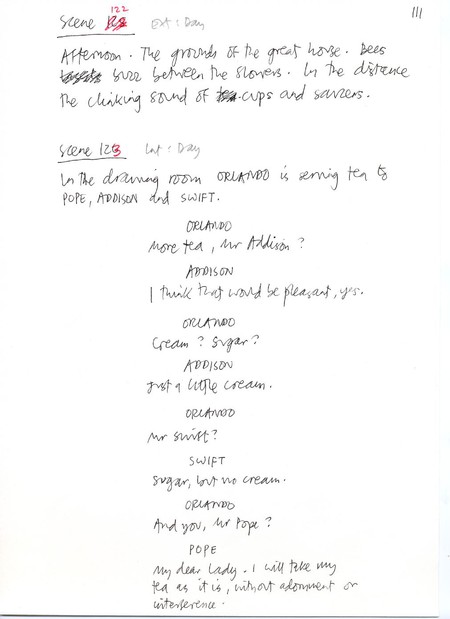 111
Scene 122 Ext: Day
Afternoon. The grounds of the great house. Bees
buzz between the flowers. In the distance
the clinking sound of cups and saucers.
Scene 123 Int: Day
In the drawing room ORLANDO is serving tea to
POPE, ADDISON and SWIFT.
ORLANDO
More tea, Mr Addison?
ADDISON
I think that would be pleasant, yes.
ORLANDO
Cream? Sugar?
ADDISON
Just a little cream.
ORLANDO
Mr Swift?
SWIFT
Sugar, but no cream.
ORLANDO
And you, Mr Pope?
POPE
My dear Lady. I will take my
tea as it is, without adornment or
interference.